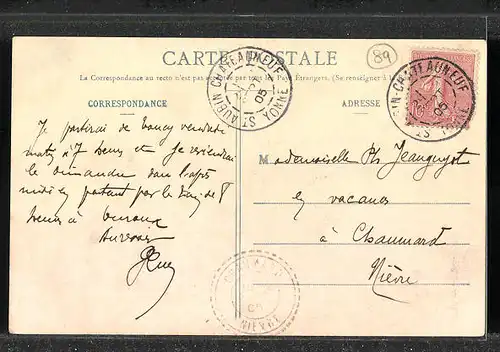 CARTE POSTALE
89
La Correspondance au recto n'est pas acceptée par tous les Pays Étrangers. (Se renseigner à la
CORRESPONDANCE
ADRESSE
ST AUBIN CHATEAUNEUF YONNE
05
Je partirai de vendredi
matin à 7 heures et je reviendrai
le dimanche dans l'après
midi en partant par le de 8
heures à
Au revoir
Mademoiselle Ph Jeanguyot
en vacances
à Chaumard
Nièvre
CHAUMARD
05
NIÈVRE